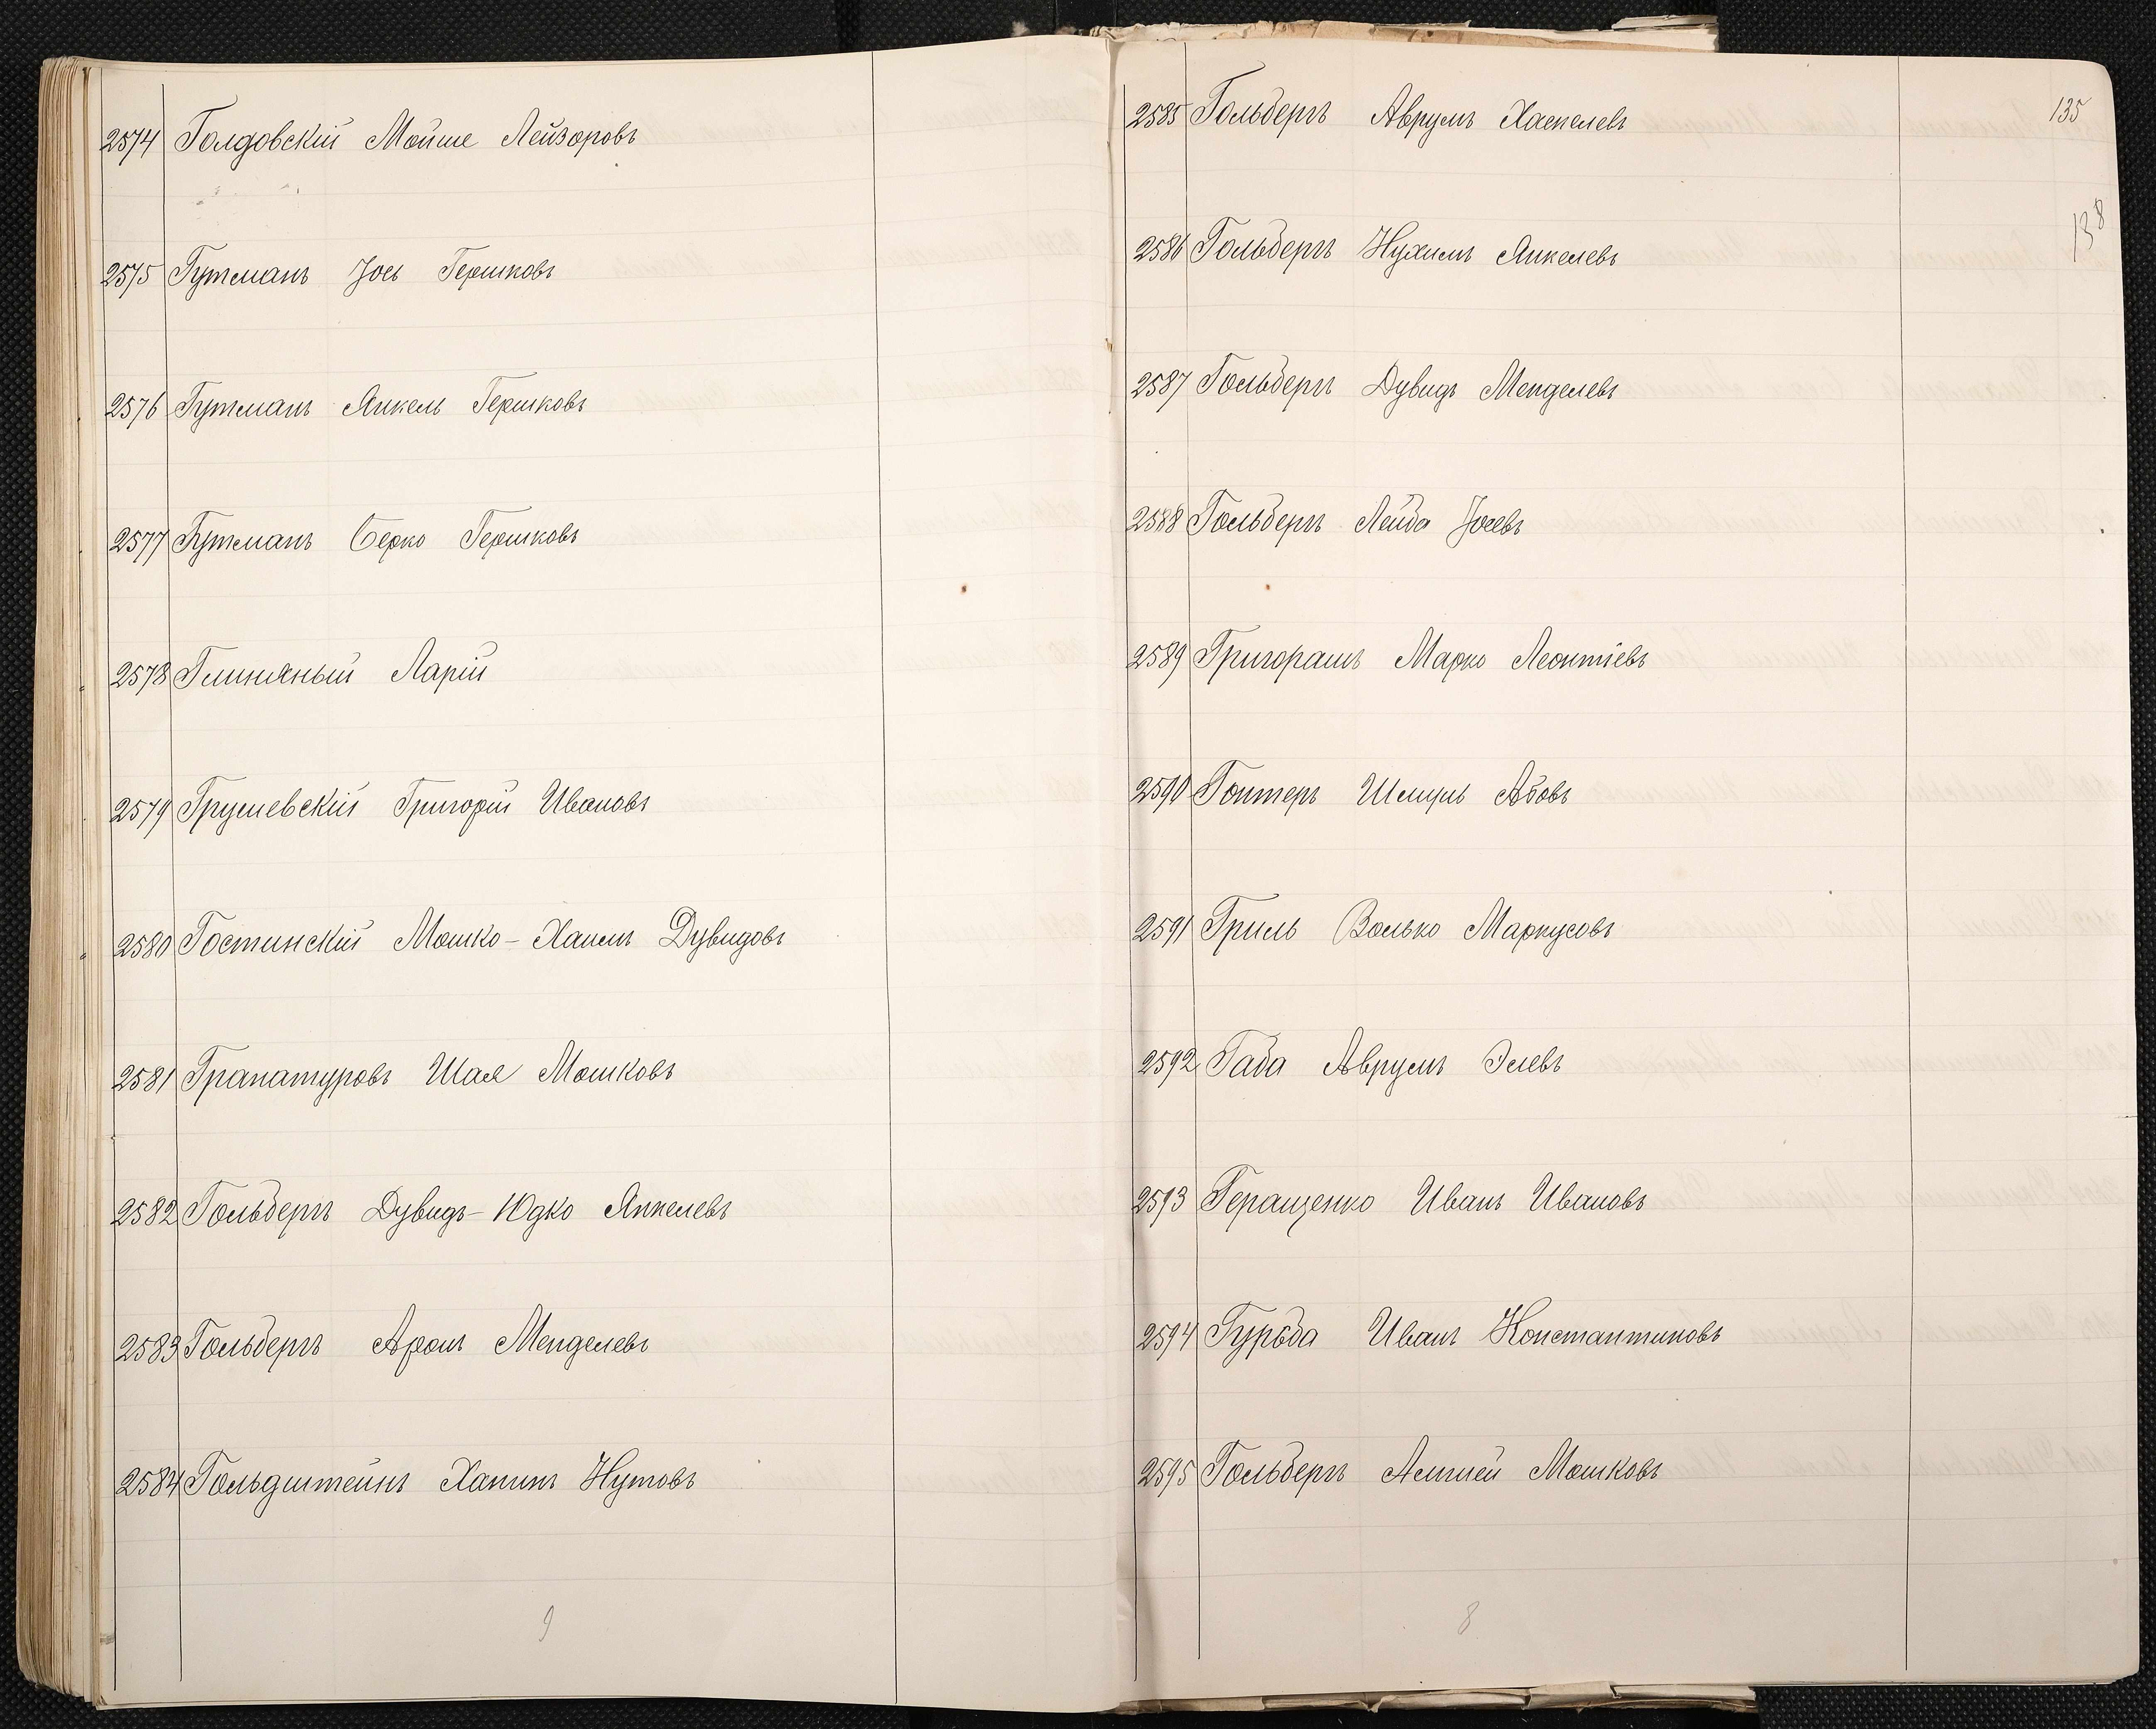 2574 Голдовскій Мойше Лейзоровъ
2575 Гутманъ Іось Гершковъ
2576 Гутманъ Янкель Гершковъ
2577 Гутманъ Берко Гершковъ
2578 Глиняный Ларій
2579 Грушевскій Григорій Ивановъ
2580 Гостинскій Мошко-Хаимъ Дувидовъ
2581 Гранатуровъ Шая Мошковъ
2582 Гольбергъ Дувидъ-Юдко Янкелевъ
2583 Гольбергъ Аронъ Менделевъ
2584 Гольдштейнъ Ханинъ Нутовъ
9
135
138
2585 Гольбергъ Аврумъ Хаскелевъ
2586 Гольбергъ Нухимъ Янкелевъ
2587 Гольбергъ Дувидъ Менделевъ
2588 Гольбергъ Лейба Іосевъ
2589 Григорашъ Марко Леонтіевъ
2590 Гонтеръ Шмуль Абовъ
2591 Гриль Волько Маркусовъ
2592 Габа Аврумъ Элевъ
2593 Геращенко Иванъ Ивановъ
2594 Гурьба Иванъ Константиновъ
2595 Гольбергъ Мошковъ
8